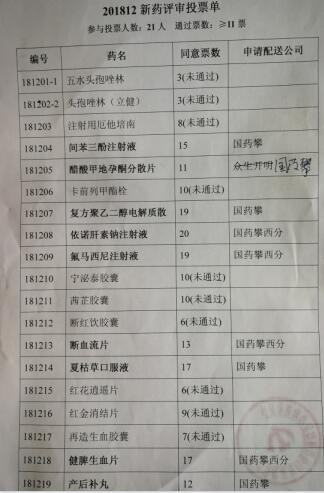 201812 新药评审投票单
参与投票人数：21 人 通过票数：≥11 票
编号 药名 同意票数 申请配送公司
181201-1 五水头孢唑林 3(未通过)
181202-2 头孢唑林（立健） 3(未通过)
181203 注射用厄他培南 8(未通过)
181204 间苯三酚注射液 15 国药攀
181205 醋酸甲地孕酮分散片 11 众生开明 国药攀
181206 卡前列甲酯栓 10(未通过)
181207 复方聚乙二醇电解质散 19 国药攀
181208 依诺肝素钠注射液 20 国药攀西分
181209 氟马西尼注射液 19 国药攀西分
181210 宁泌泰胶囊 10(未通过)
181211 茜芷胶囊 10(未通过)
181212 断红饮胶囊 6(未通过)
181213 断血流片 13 国药攀西分
181214 夏枯草口服液 17 国药攀
181215 红花逍遥片 6(未通过)
181216 红金消结片 9(未通过)
181217 再造生血胶囊 7(未通过)
181218 健脾生血片 17 国药攀西分
181219 产后补丸 12 国药攀